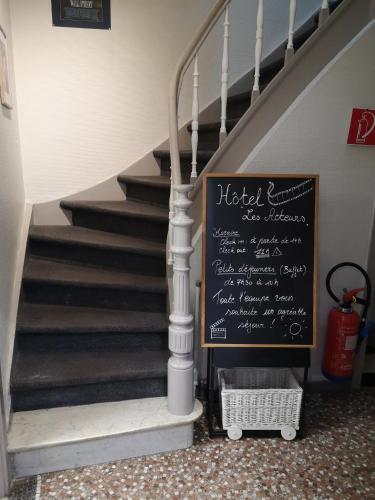 Hôtel
Les Acteurs
Horaire
Check in: à partir de 14h
check out: 11h
Petits déjeuners (Buffet)
de 7h30 à 10h
Toute l'équipe vous
souhaite un agréable
séjour!